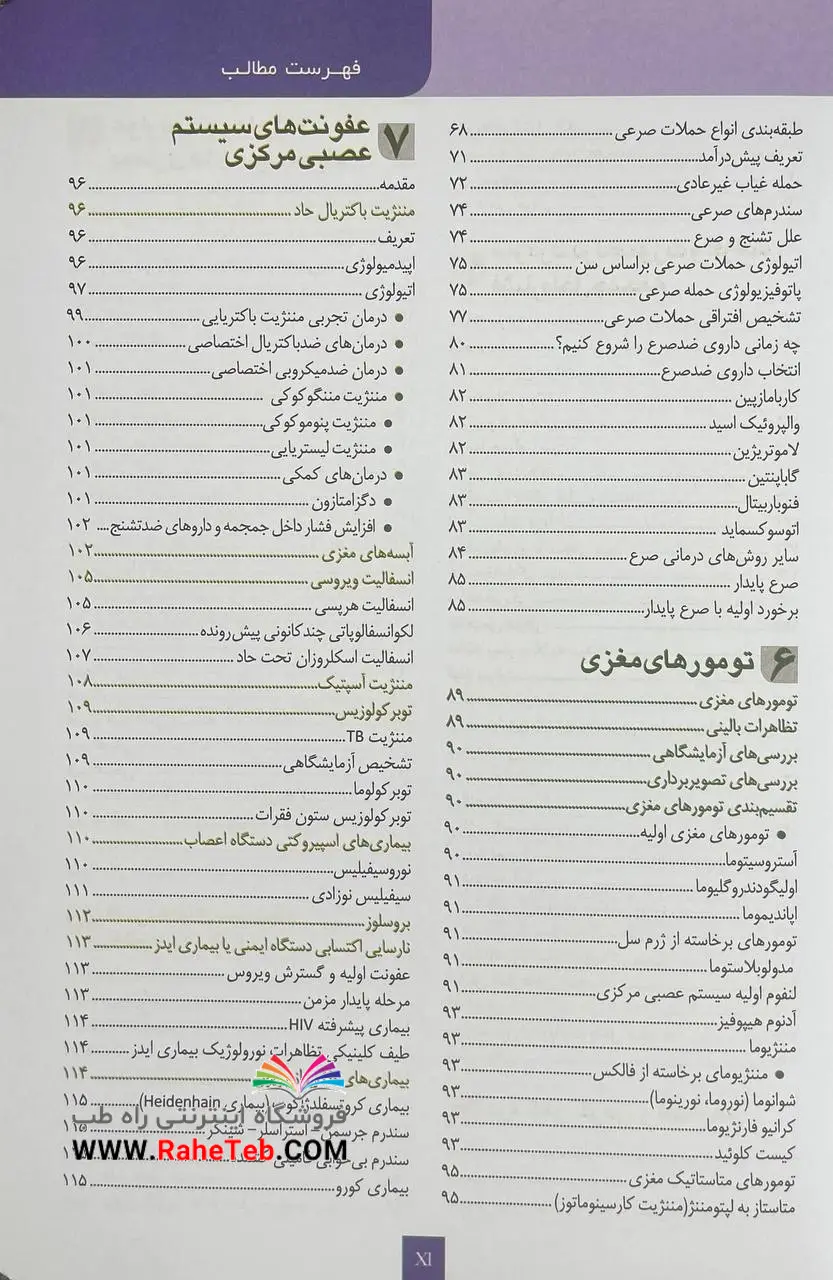 فهرست مطالب
طبقه‌بندی انواع حملات صرعی ........ ۶۸
تعریف پیش‌درآمد ........ ۷۱
حمله غیاب غیرعادی ........ ۷۲
سندرم‌های صرعی ........ ۷۴
علل تشنج و صرع ........ ۷۴
اتیولوژی حملات صرعی براساس سن ........ ۷۵
پاتوفیزیولوژی حمله صرعی ........ ۷۵
تشخیص افتراقی حملات صرعی ........ ۷۷
چه زمانی داروی ضدصرع را شروع کنیم؟ ........ ۸۰
انتخاب داروی ضدصرع ........ ۸۱
کاربامازپین ........ ۸۲
والپروئیک اسید ........ ۸۲
لاموتریژین ........ ۸۲
گاباپنتین ........ ۸۳
فنوباربیتال ........ ۸۳
اتوسوکسماید ........ ۸۳
سایر روش‌های درمانی صرع ........ ۸۴
صرع پایدار ........ ۸۵
برخورد اولیه با صرع پایدار ........ ۸۵
۶ تومورهای مغزی
تومورهای مغزی ........ ۸۹
تظاهرات بالینی ........ ۸۹
بررسی‌های آزمایشگاهی ........ ۹۰
بررسی‌های تصویربرداری ........ ۹۰
تقسیم‌بندی تومورهای مغزی ........ ۹۰
● تومورهای مغزی اولیه ........ ۹۰
آستروسیتوما ........ ۹۰
اولیگودندروگلیوما ........ ۹۱
اپاندیموما ........ ۹۱
تومورهای برخاسته از ژرم سل ........ ۹۱
مدولوبلاستوما ........ ۹۱
لنفوم اولیه سیستم عصبی مرکزی ........ ۹۱
آدنوم هیپوفیز ........ ۹۳
مننژیوما ........ ۹۳
● مننژیومای برخاسته از فالکس ........ ۹۳
شوانوما (نوروما، نورینوما) ........ ۹۳
کرانیو فارنژیوما ........ ۹۳
کیست کلوئید ........ ۹۳
تومورهای متاستاتیک مغزی ........ ۹۵
متاستاز به لپتومننژ(مننژیت کارسینوماتوز) ........ ۹۵
۷ عفونت‌های سیستم
عصبی مرکزی
مقدمه ........ ۹۶
مننژیت باکتریال حاد ........ ۹۶
تعریف ........ ۹۶
اپیدمیولوژی ........ ۹۶
اتیولوژی ........ ۹۷
● درمان تجربی مننژیت باکتریایی ........ ۹۹
● درمان‌های ضدباکتریال اختصاصی ........ ۱۰۰
● درمان ضدمیکروبی اختصاصی ........ ۱۰۱
● مننژیت مننگوکوکی ........ ۱۰۱
● مننژیت پنوموکوکی ........ ۱۰۱
● مننژیت لیستریایی ........ ۱۰۱
● درمان‌های کمکی ........ ۱۰۱
● دگزامتازون ........ ۱۰۱
● افزایش فشار داخل جمجمه و داروهای ضدتشنج .... ۱۰۲
آبسه‌های مغزی ........ ۱۰۲
انسفالیت ویروسی ........ ۱۰۵
انسفالیت هرپسی ........ ۱۰۵
لکوانسفالوپاتی چندکانونی پیش‌رونده ........ ۱۰۶
انسفالیت اسکلروزان تحت حاد ........ ۱۰۷
مننژیت آسپتیک ........ ۱۰۸
توبرکولوزیس ........ ۱۰۹
مننژیت TB ........ ۱۰۹
تشخیص آزمایشگاهی ........ ۱۰۹
توبرکولوما ........ ۱۱۰
توبرکولوزیس ستون فقرات ........ ۱۱۰
بیماری‌های اسپیروکتی دستگاه اعصاب ........ ۱۱۰
نوروسیفیلیس ........ ۱۱۰
سیفیلیس نوزادی ........ ۱۱۱
بروسلوز ........ ۱۱۲
نارسایی اکتسابی دستگاه ایمنی یا بیماری ایدز ........ ۱۱۳
عفونت اولیه و گسترش ویروس ........ ۱۱۳
مرحله پایدار مزمن ........ ۱۱۳
بیماری پیشرفته HIV ........ ۱۱۴
طیف کلینیکی تظاهرات نورولوژیک بیماری ایدز ........ ۱۱۴
بیماری‌های ........ ۱۱۴
بیماری کروتسفلدژاکوب (بیماری Heidenhain) ........ ۱۱۵
سندرم جرسمن – استراسلر – شینکر ........ ۱۱۵
سندرم بی‌خوابی فامیلی ........
بیماری کورو ........ ۱۱۵
فروشگاه اینترنتی راه طب
WWW.RaheTeb.COM
XI